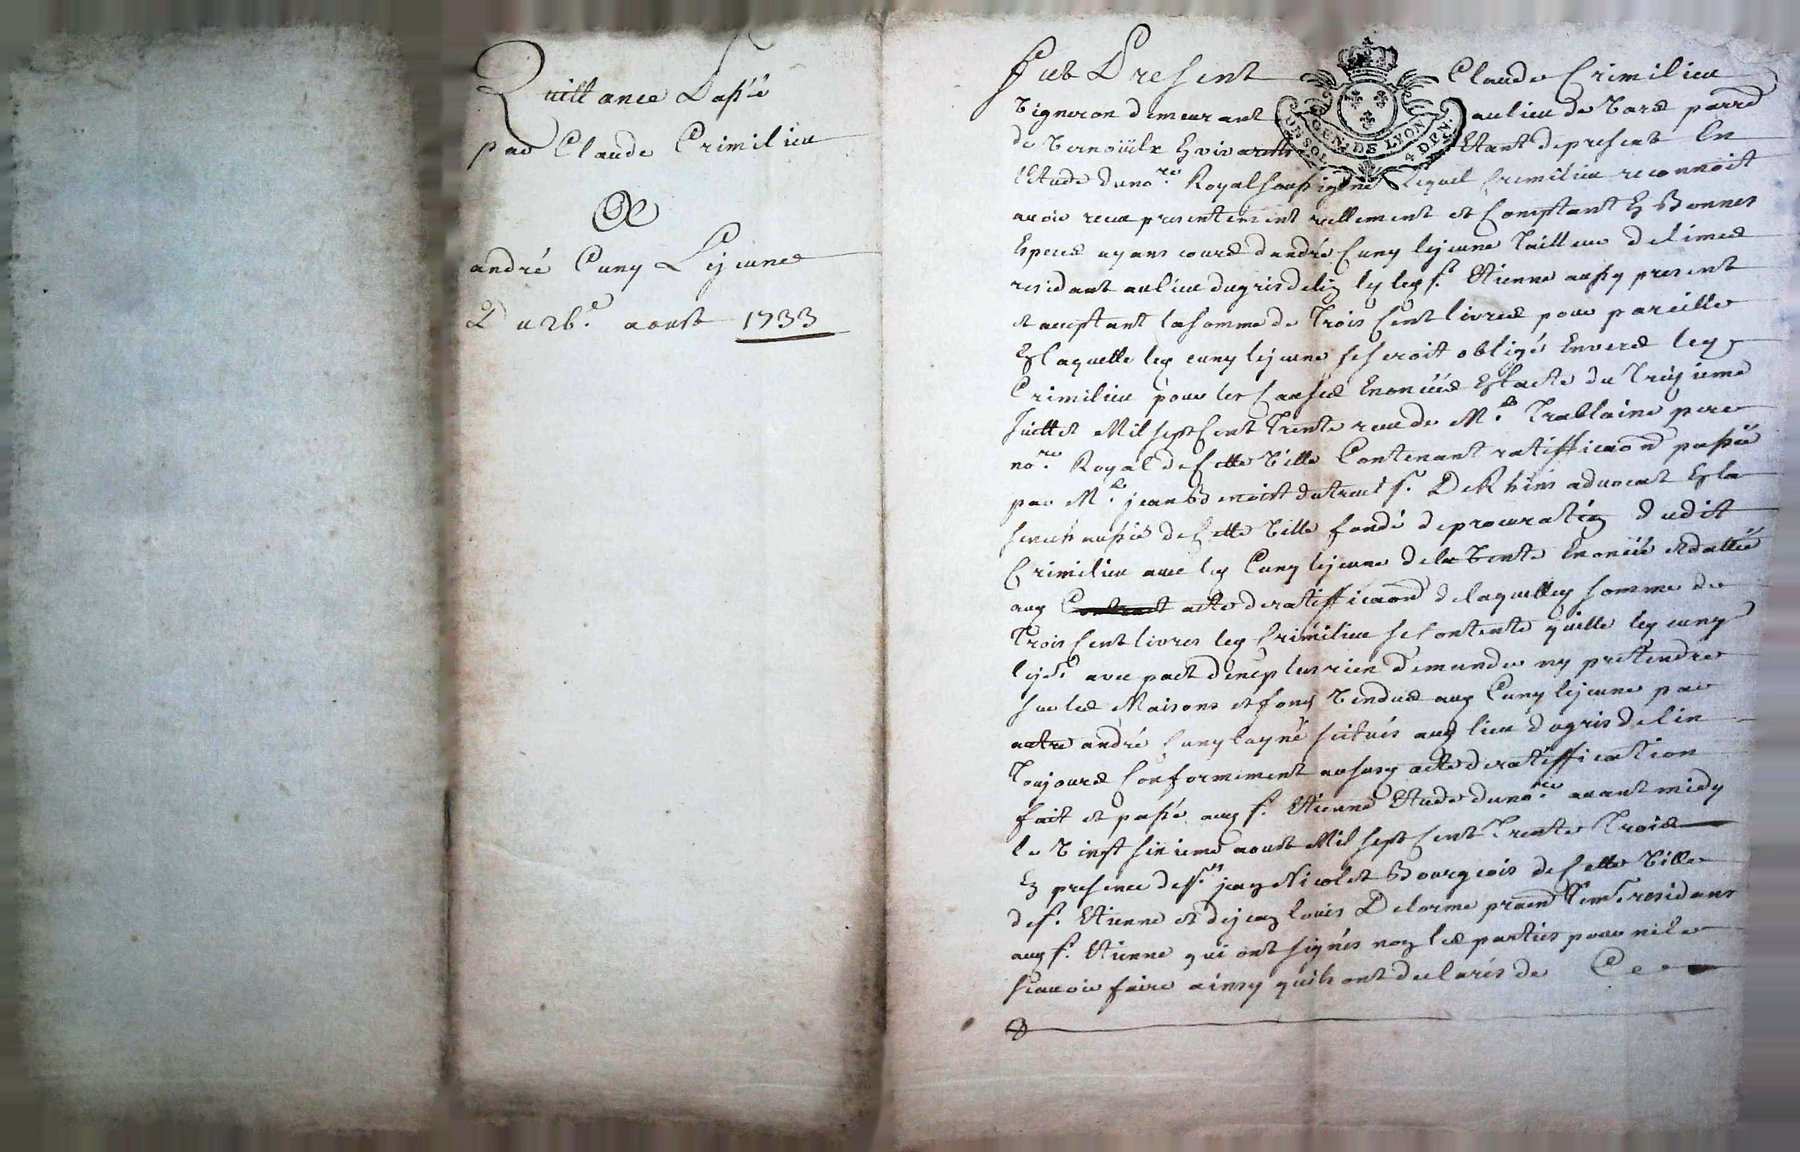 Quittance Passée
par Claude Crimilieu
A
andré Cuny Lejeune
Du 26e. aoust 1733
GEN. DE LYON
UN SOL. 4 D. P. N.
Fut Present Claude Crimilieu
Vigneron demeurant au lieu de Bars parroe
de Vernoüilx En vivarets Etant depresent En
l'Etude du nore. Royal soussigné Lequel Crimilieu reconnoit
avoir receu presentement rellement et Comptant En Bonnes
Especes ayans cours d'andré Cuny lejeune Tailleur de limes
residant au lieu du gris de lin les led. St. Etienne aussy present
et acceptant la somme de Trois Cent livres pour pareille
En laquelle led. cuny lejeune se seroit obligé Envers led.
Crimilieu pour les Causes Enoncées En l'acte du Treizieme
Juillet Mil sept Cent Trente receu de Me. Trablaine pere
nore. Royal de Cette Ville Contenant ratifficaon passée
par Me. jean Benoist dutreuil sr. De Rhins advocat En la
senechaussée de Cette Ville fondé de procuration dudit
Crimilieu avec led. Cuny lejeune de la Vente Enoncée et dattée
aud. Contract acte de ratifficaon de laquelle somme de
Trois Cent livres led. Crimilieu se Contente quitte led. cuny
lejne. avec pact d'en plus rien demander ny pretendre
sur les Maisons et fonds Vendues aud. Cuny lejeune par
autre andré Cuny l'ayné scitués aud. lieu du gris de lin
Toujours Conformement au susd. acte de ratiffication
fait et passé aud. St. Etienne Etude du nore. avant midy
le Vingt sixieme aoust Mil sept Cent Trente Trois
En presence de sr. jean Nicolet Bourgeois de Cette Ville
de St. Etienne et de jean louis Delorme praen residans
aud. St. Etienne qui ont signés non les parties pour ne le
scavoir faire ainsy quils ont declarés de Ce